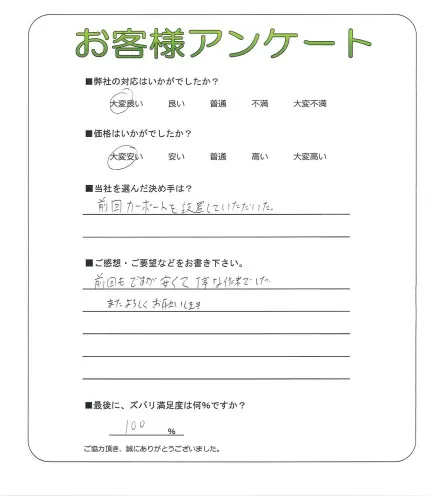 お客様アンケート
■弊社の対応はいかがでしたか？
大変良い 良い 普通 不満 大変不満
■価格はいかがでしたか？
大変安い 安い 普通 高い 大変高い
■当社を選んだ決め手は？
前回カーポートを設置していただいた。
■ご感想・ご要望などをお書き下さい。
前回もですが安くて丁寧な作業でした。
またよろしくお願いします
■最後に、ズバリ満足度は何％ですか？
100 ％
ご協力頂き、誠にありがとうございました。